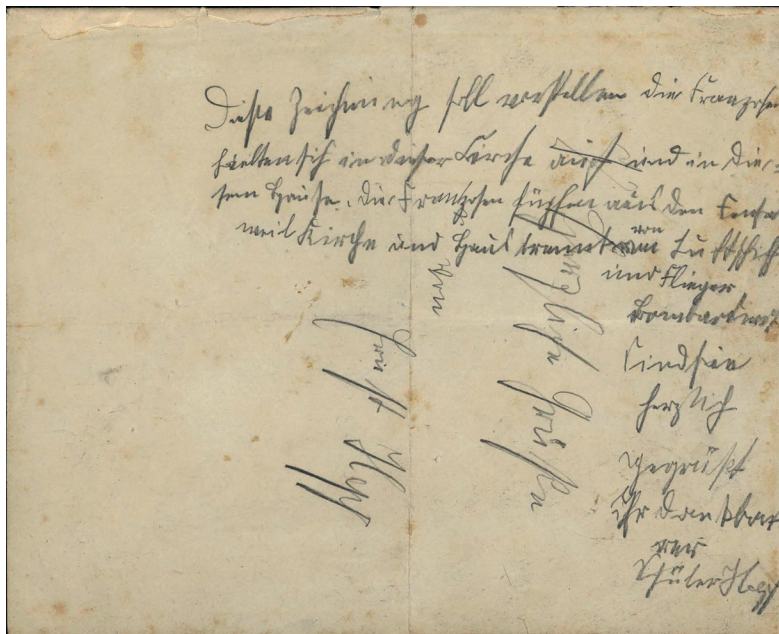 Diese Zeichnung soll vorstellen die Franzosen
hielten sich in dieser Kirche auf und in die-
sem Hause. Die Franzosen hüpfen aus den Fens
weil Kirche und Haus brennt von Luftschiff
und Flieger
Bombardirt
Sind sie
herzlich
gegrüßt
Ihr dankbar
rer
Schüler
Herzliche Grüße
von
Ernst